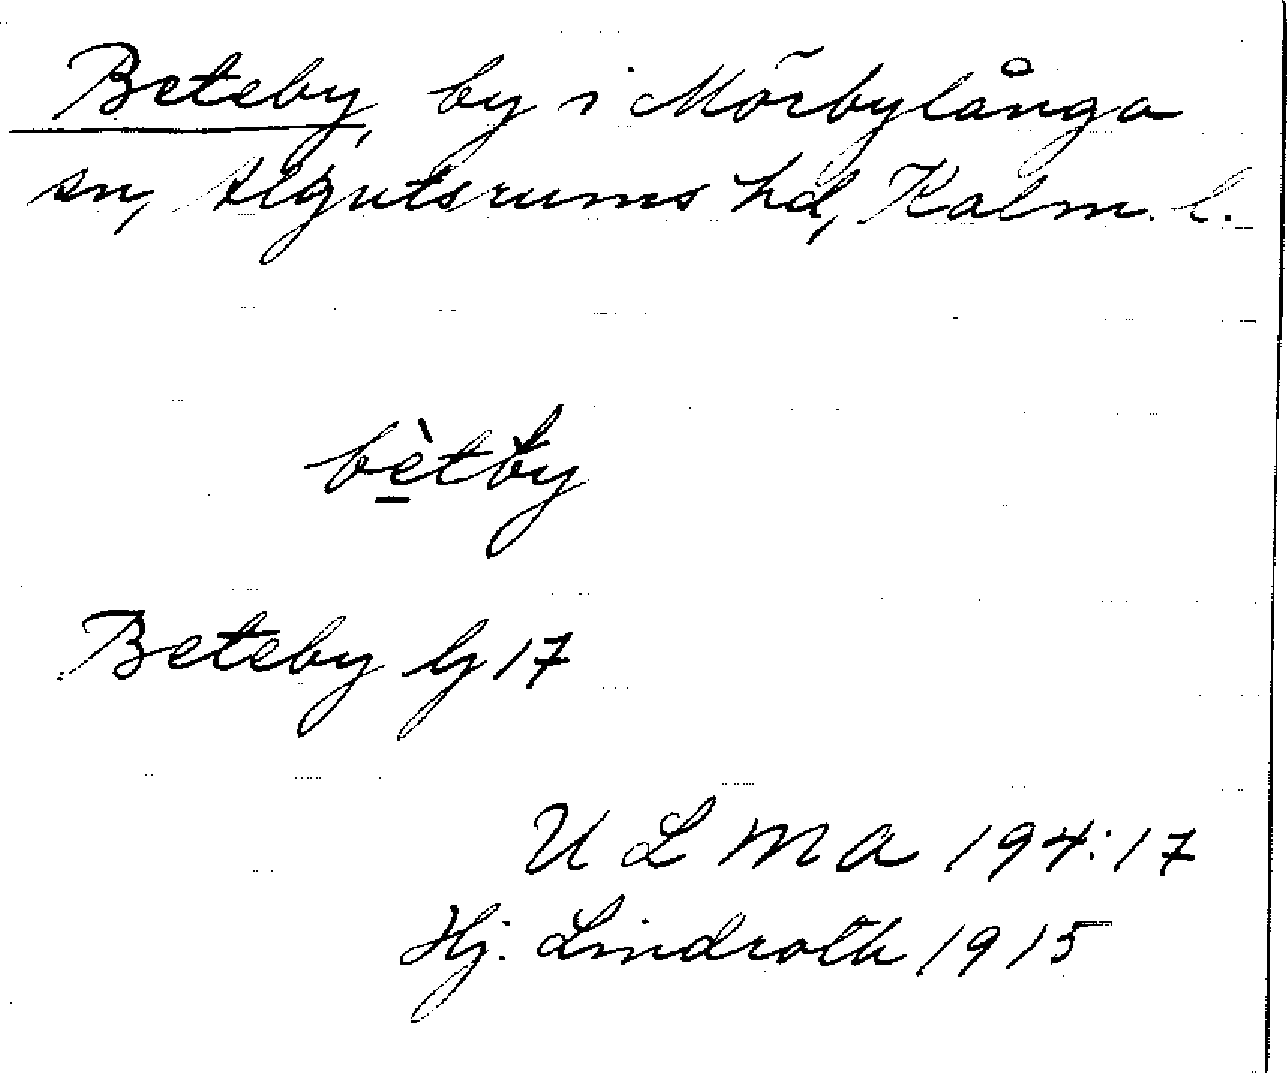 Beteby, by i Mörbylånga
sn, Algutsrums hd, Kalm. l.
bètby
Beteby Gj 17
ULMA 194:17
Hj. Lindroth 1915